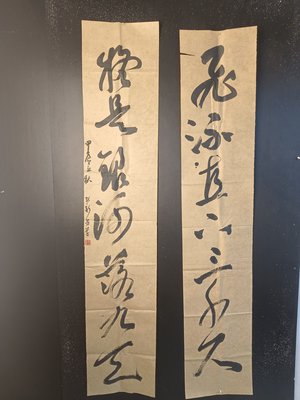 飛流直下三千尺
疑是銀河落九天
甲辰 秋